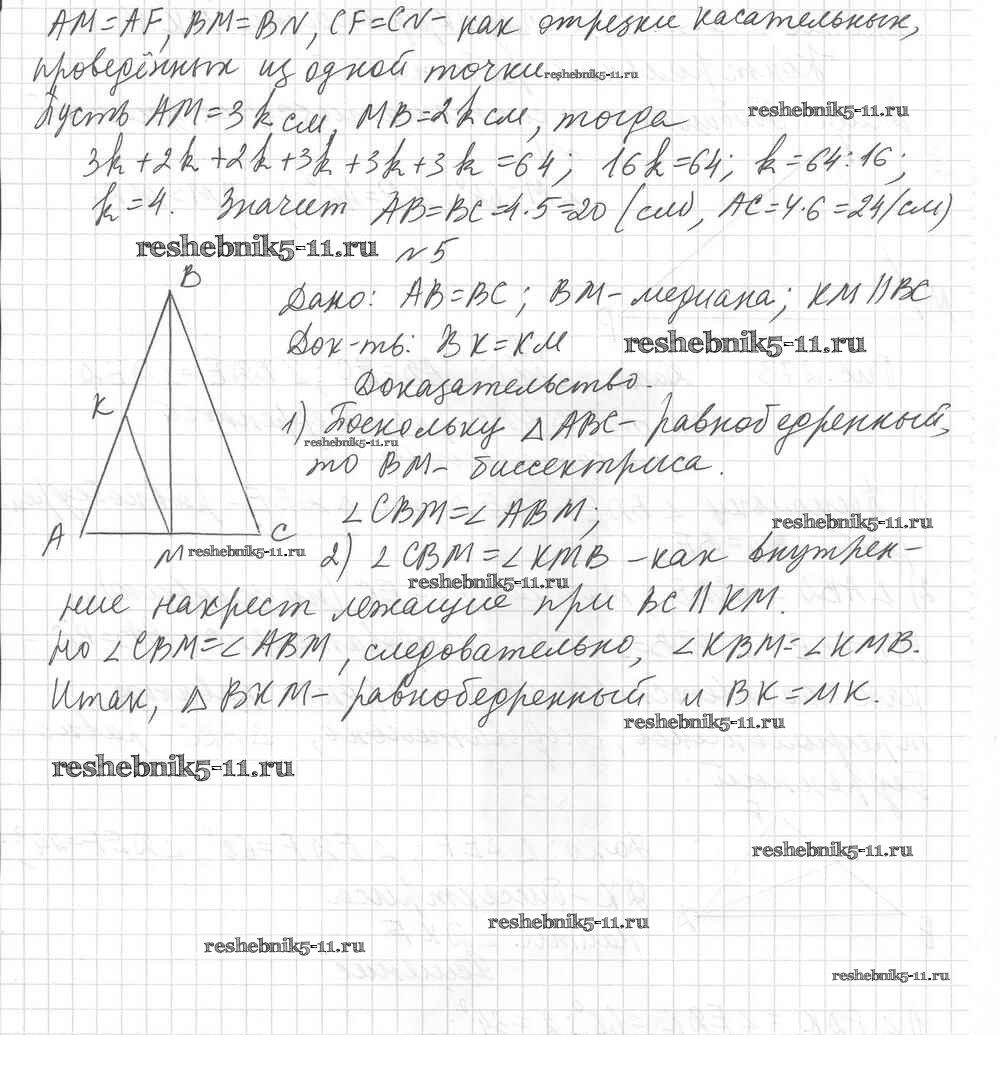 AM=AF, BM=BN, CF=CN- как отрезки касательных,
проведённых из одной точки. reshebnik5-11.ru
reshebnik5-11.ru
Пусть AM=3k см, MB=2k см, тогда
3k+2k+2k+3k+3k+3k=64; 16k=64; k=64:16;
k=4. Значит AB=BC=4·5=20 (см), AC=4·6=24(см)
reshebnik5-11.ru №5
B
Дано: AB=BC; BM- медиана; KM||BC
Док-ть: BK=KM reshebnik5-11.ru
Доказательство.
K
1) Поскольку △ABC- равнобедренный,
reshebnik5-11.ru
то BM- биссектриса.
∠CBM=∠ABM;
reshebnik5-11.ru
A M C
reshebnik5-11.ru
2) ∠CBM=∠KMB -как внутрен-
reshebnik5-11.ru
ние накрест лежащие при BC||KM.
Но ∠CBM=∠ABM, следовательно, ∠KBM=∠KMB.
Итак, △BKM- равнобедренный и BK=MK.
reshebnik5-11.ru
reshebnik5-11.ru
reshebnik5-11.ru
reshebnik5-11.ru
reshebnik5-11.ru
reshebnik5-11.ru